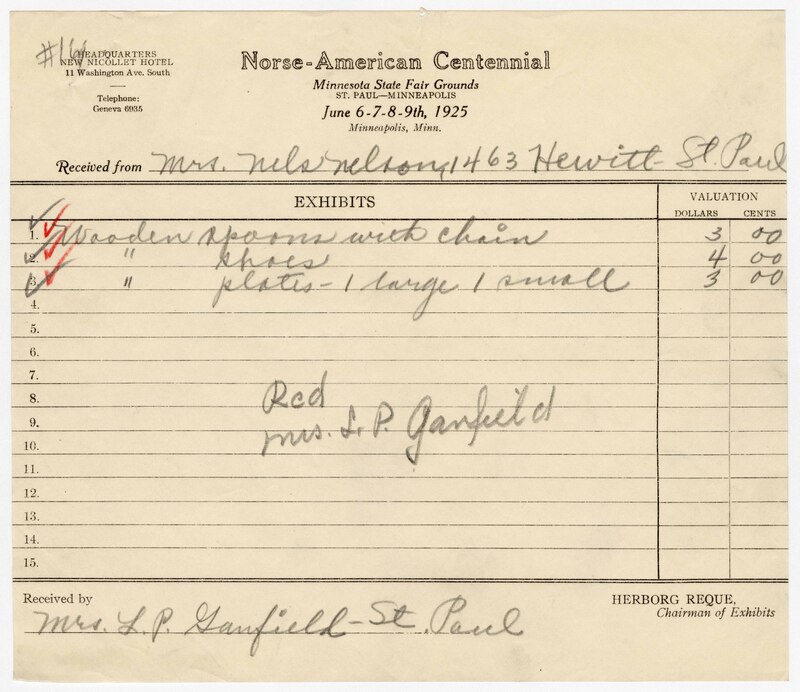 #166
HEADQUARTERS
NEW NICOLLET HOTEL
11 Washington Ave. South
Telephone:
Geneva 6935
Norse-American Centennial
Minnesota State Fair Grounds
ST. PAUL—MINNEAPOLIS
June 6-7-8-9th, 1925
Minneapolis, Minn.
Received from Mrs. Nels Nelson, 1463 Hewitt - St. Paul
EXHIBITS VALUATION
DOLLARS CENTS
1. Wooden spoons with chain 3 00
2. " shoes 4 00
3. " plates - 1 large 1 small 3 00
4.
5.
6.
7.
8. Rcd
9. Mrs. L. P. Ganfield
10.
11.
12.
13.
14.
15.
Received by
Mrs. L. P. Ganfield - St. Paul
HERBORG REQUE,
Chairman of Exhibits